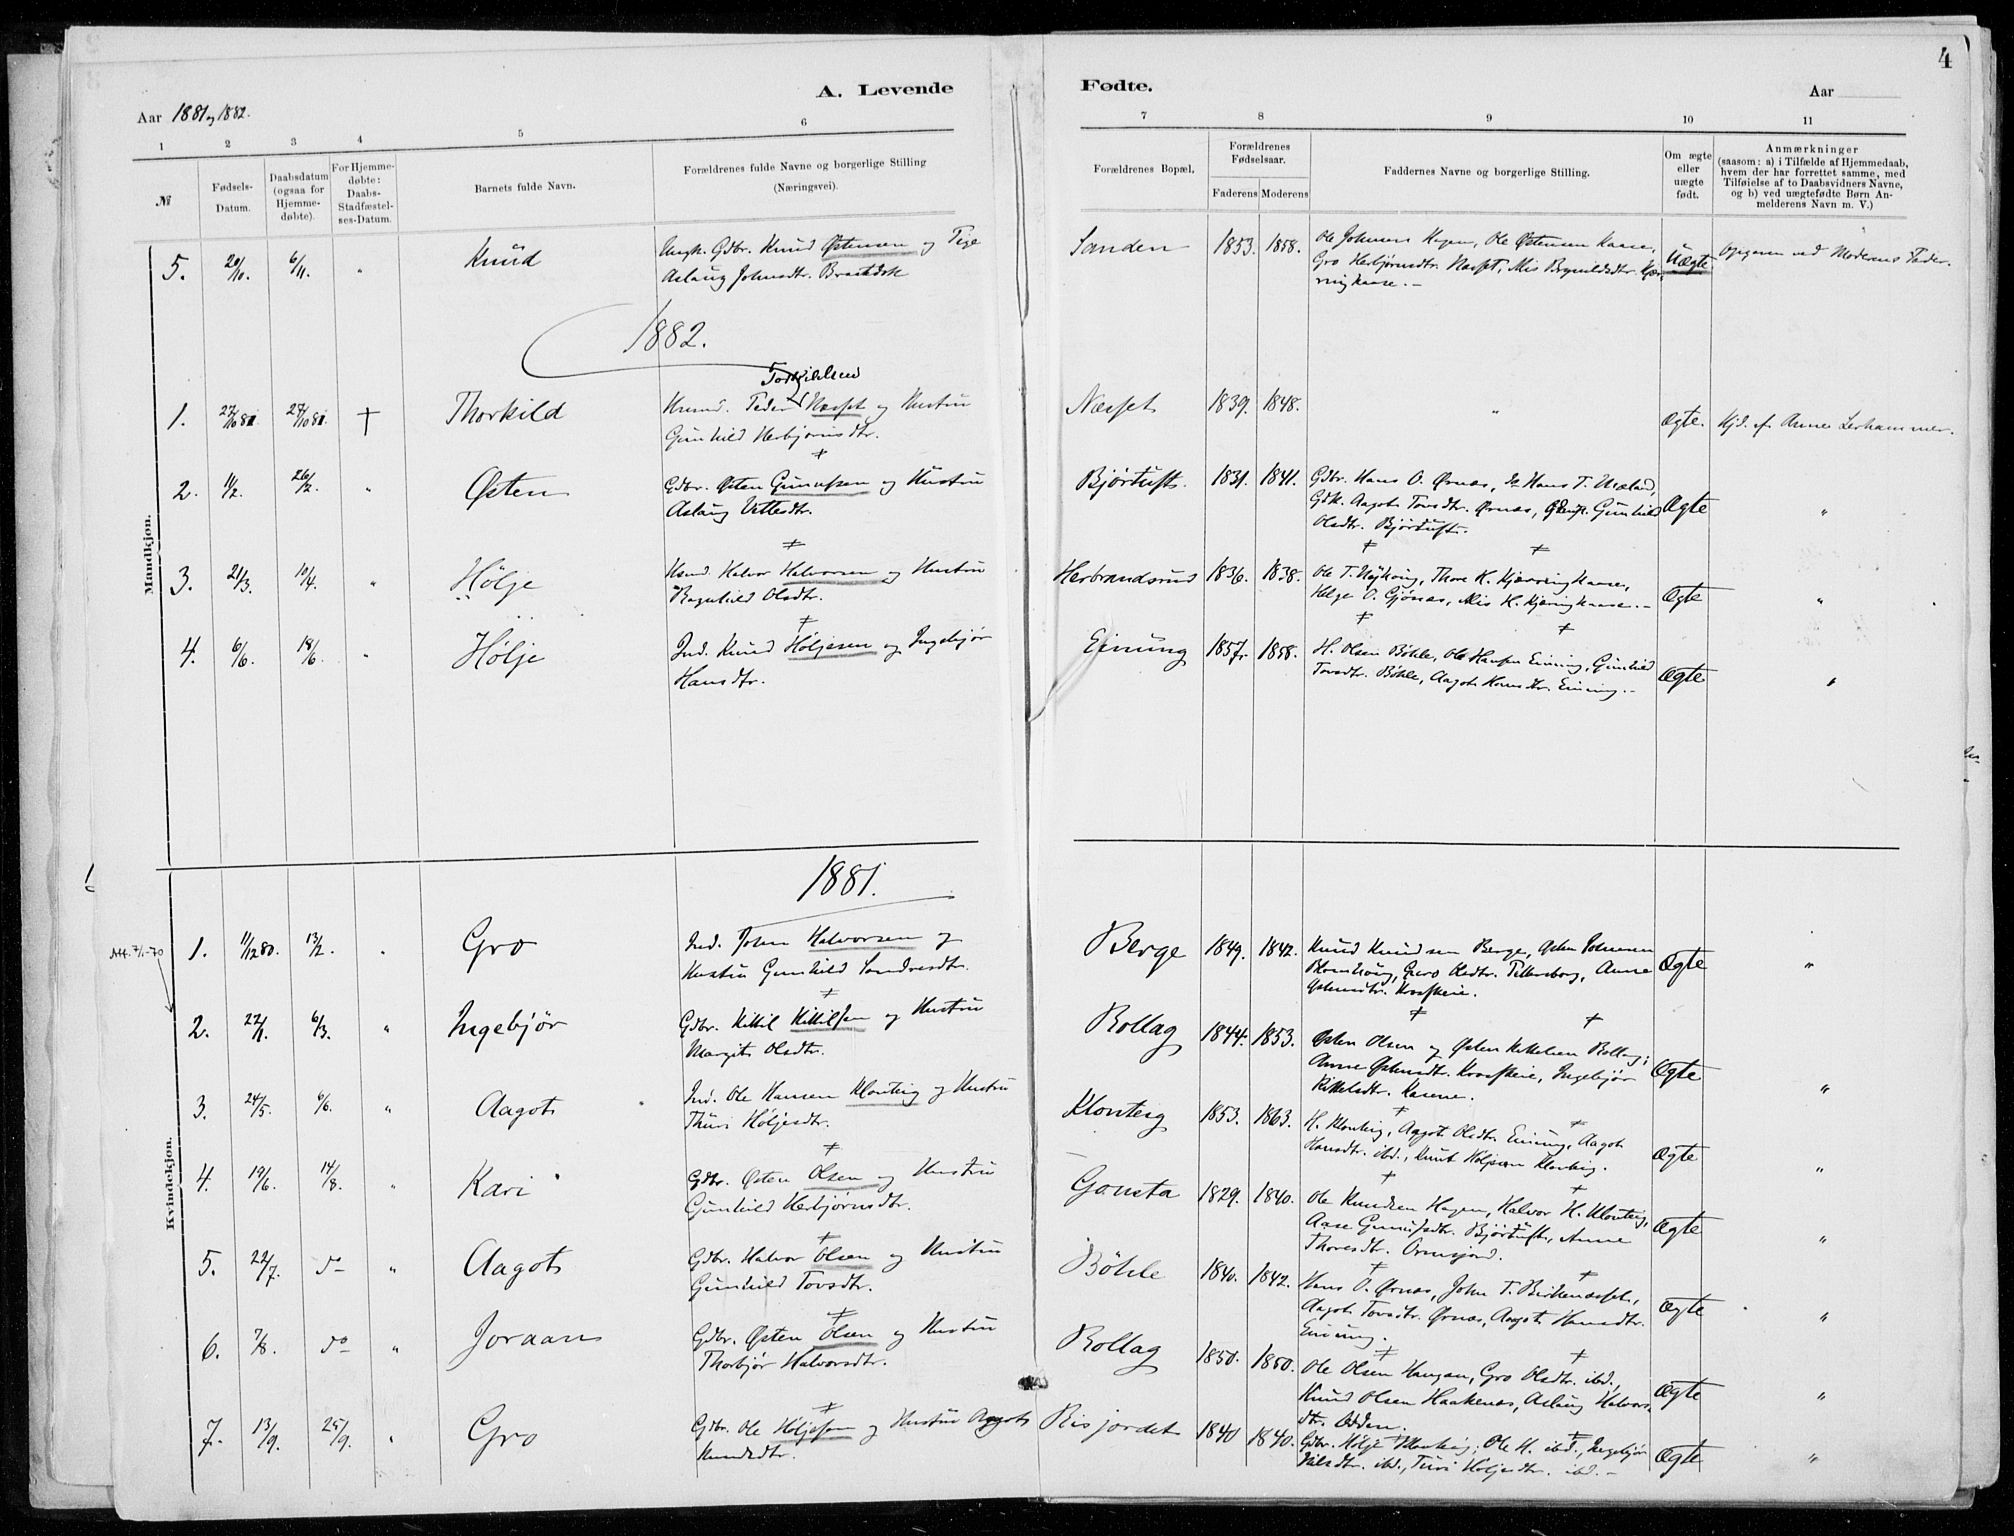 4
A. Levende
Fødte.
Aar 1881 og 1882.
Aar
1 2 3 4 5 6 7 8 9 10 11
№
Fødsels-
Datum.
Daabsdatum
(ogsaa for
Hjemme-
døbte).
For Hjemme-
døbte:
Daabs-
Stadfæstel-
ses-Datum.
Barnets fulde Navn.
Forældrenes fulde Navne og borgerlige Stilling
(Næringsvei).
Forældrenes Bopæl,
Forældrenes
Fødselsaar.
Faderens Moderens
Faddernes Navne og borgerlige Stilling.
Om ægte
eller
uægte
født.
Anmærkninger
(saasom: a) i Tilfælde af Hjemmedaab,
hvem der har forrettet samme, med
Tilføielse af to Daabsvidners Navne,
og b) ved uægtefødte Børn An-
melderens Navn m. V.)
Mandkjøn.
5. 20/10. 6/11. " Knud
Ungk. Gdbr. Knud Østensen og Pige
Aslaug Johnsdtr.
Sanden 1853. 1858.
Ole Johnsen Hagen, Ole Østensen Kaase,
Gro Herbjørnsdtr. Næsset,
Uægte
Opgiven ved Moderens Fader.
1882.
1. 27/10 81 27/10 81. † Thorkild
Torkildsen
Kusmd. Peder Næsset og Hustru
Gunhild Herbjørnsdtr.
Næsset 1839. 1848. "
Ægte.
Hjd. af Anne Lerhammer.
2. 11/2. 26/2. " Østen
Gdbr. Østen Gunulfsen og Hustru
Aslaug Vetlesdtr.
Bjørtuft. 1831. 1841.
Gdbr. Hans O. Ørnæs, do Hans T. Uraland,
Gdk. Aagot Tovsdtr. Ørnæs, Gunhild
Olsdtr. Bjørtuft.
Ægte "
3. 21/3. 10/4. " Hølje
Husmd. Halvor Halvorsen og Hustru
Ragnhild Olsdtr.
Herbrandsrud 1836. 1838.
Ole T. Nyhaug, Thore H. Kjærringkaase,
Helge O. Gjønæs, H. Kjæringkaase.
Ægte "
4. 6/6. 18/6. " Hølje
Ind. Knud Høljesen og Ingebjør
Hansdtr.
Einung 1857. 1858.
H. Olsen Bøhle, Ole Hansen Einung, Gunhild
Tovsdtr. Bøhle, Aagot Hansdtr. Einung.
Ægte "
Kvindekjøn.
1881.
Att. 7/1-70
1. 11/12 80. 13/2. " Gro
Ind. John Halvorsen og
Hustru Gunhild Sondresdtr.
Berge 1849. 1842.
Knud Knudsen Berge, Østen Johnsen
Blomhaug, Guro Olsdtr. Anne
Østensdtr.
Ægte "
2. 22/1. 6/3. " Ingebjør
Gdbr. Kittil Kittilsen og Hustru
Margit Olsdtr.
Bollag 1844. 1853.
Østen Olsen og Østen Kittelsen Bollag;
Anne Østensdtr. Ingebjør
Kittelsdtr. Kasene.
Ægte "
3. 24/5. 6/6. " Aagot
Ind. Ole Hansen Klonteig og Hustru
Thuri Høljesdtr.
Klonteig 1853. 1863.
H. Klonteig, Aagot Olsdtr. Einung, Aagot
Hansdtr. ibd., Knut Høljesen Klonteig.
Ægte "
4. 19/6. 14/8. " Kari
Gdbr. Østen Olsen og Hustru
Gunhild Herbjørnsdtr.
Gausta 1829. 1840.
Ole Knudsen Hagen, Halvor H. Klonteig,
Aase Gunulfsdtr. Bjørtuft, Anne
Thoresdtr. Ormsjord.
Ægte "
5. 22/7. do " Aagot
Gdbr. Halvor Olsen og Hustru
Gunhild Tovsdtr.
Bøhle 1840. 1842.
Hans O. Ørnæs, John T. Birkenæsset,
Aagot Tovsdtr. Ørnæs, Aagot Hansdtr.
Einung.
Ægte "
6. 7/8. do " Joraan
Gdbr. Østen Olsen og Hustru
Thorbjør Halvorsdtr.
Bollag 1850. 1850.
Ole Olsen Haugan, Gro Olsdtr. ibd.,
Knud Olsen Haakenæs, Aslaug Halvors-
dtr. Odden.
Ægte "
7. 13/9. 25/9. " Gro
Gdbr. Ole Høljesen og Hustru Aagot
Knudsdtr.
Risjordet 1840 1840.
Gdbr. Hølje Klonteig; Ole H. ibd., Ingebjør
Nilsdtr. ibd., Turi Høljesdtr. ibd.
Ægte "